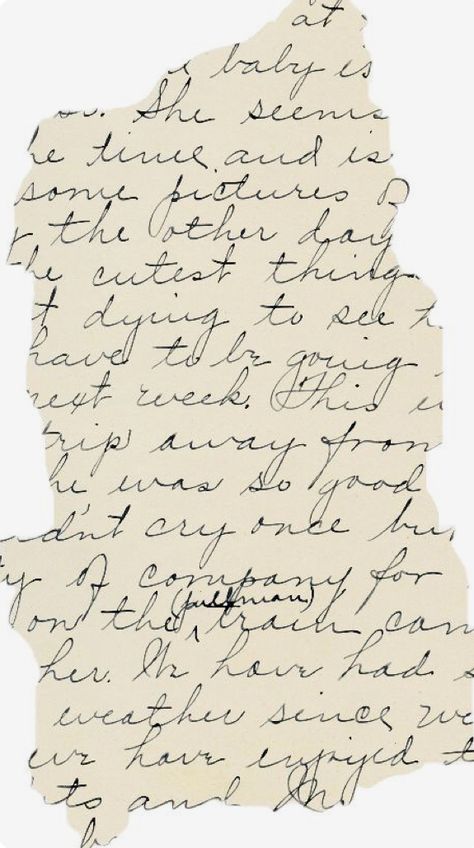 at
baby is
so. She seems
he time and is
some pictures of
the other day
the cutest things
t dying to see h
have to be going
next week. This
trip away from
he was so good
dn't cry once bu
ty of company for
(pullman)
on the train cam
her. We have had s
weather since we
we have enjoyed t
ts and